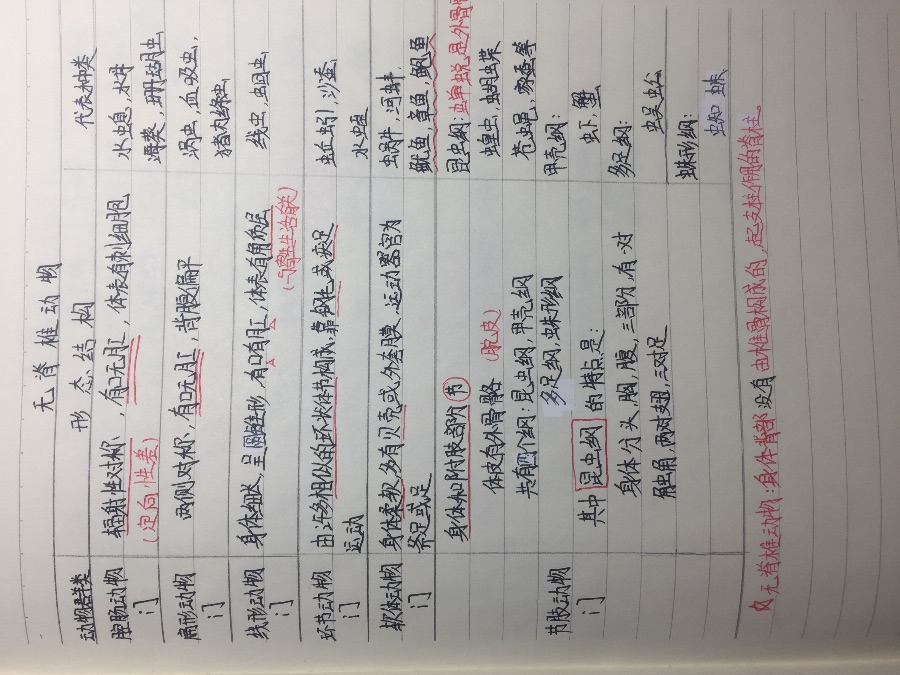 无脊椎动物
动物群类 形态结构 代表种类
腔肠动物门 辐射性对称,有口无肛,体表有刺细胞 水螅,水母
(定向性差) 海葵,珊瑚虫
扁形动物门 两侧对称,有口无肛,背腹扁平 涡虫,血吸虫,
猪肉绦虫
线形动物门 身体细长,呈圆锥形,有口有肛,体表有角质层 线虫,蛔虫
(与寄生生活有关)
环节动物门 由许多相似的环状体节构成,靠刚毛或疣足 蚯蚓,沙蚕,
运动 水蛭
软体动物门 身体柔软,多有贝壳或外套膜,运动器官为 蜗牛,河蚌,
足或足 鱿鱼,章鱼,鲍鱼
节肢动物门 身体和附肢都分节 昆虫纲:蝉蜕是外骨骼
体皮有外骨骼 (脱皮) 蝗虫,蝴蝶
共有四个纲:昆虫纲,甲壳纲 苍蝇,家蚕等
多足纲,蛛形纲 甲壳纲:
其中昆虫纲的特点是: 虾,蟹
身体分头,胸,腹,三部分,有一对 多足纲:
触角,两对翅,三对足 蜈蚣
蛛形纲:
蜘蛛
无脊椎动物:身体背部没有由椎骨构成的,起支柱作用的脊柱。